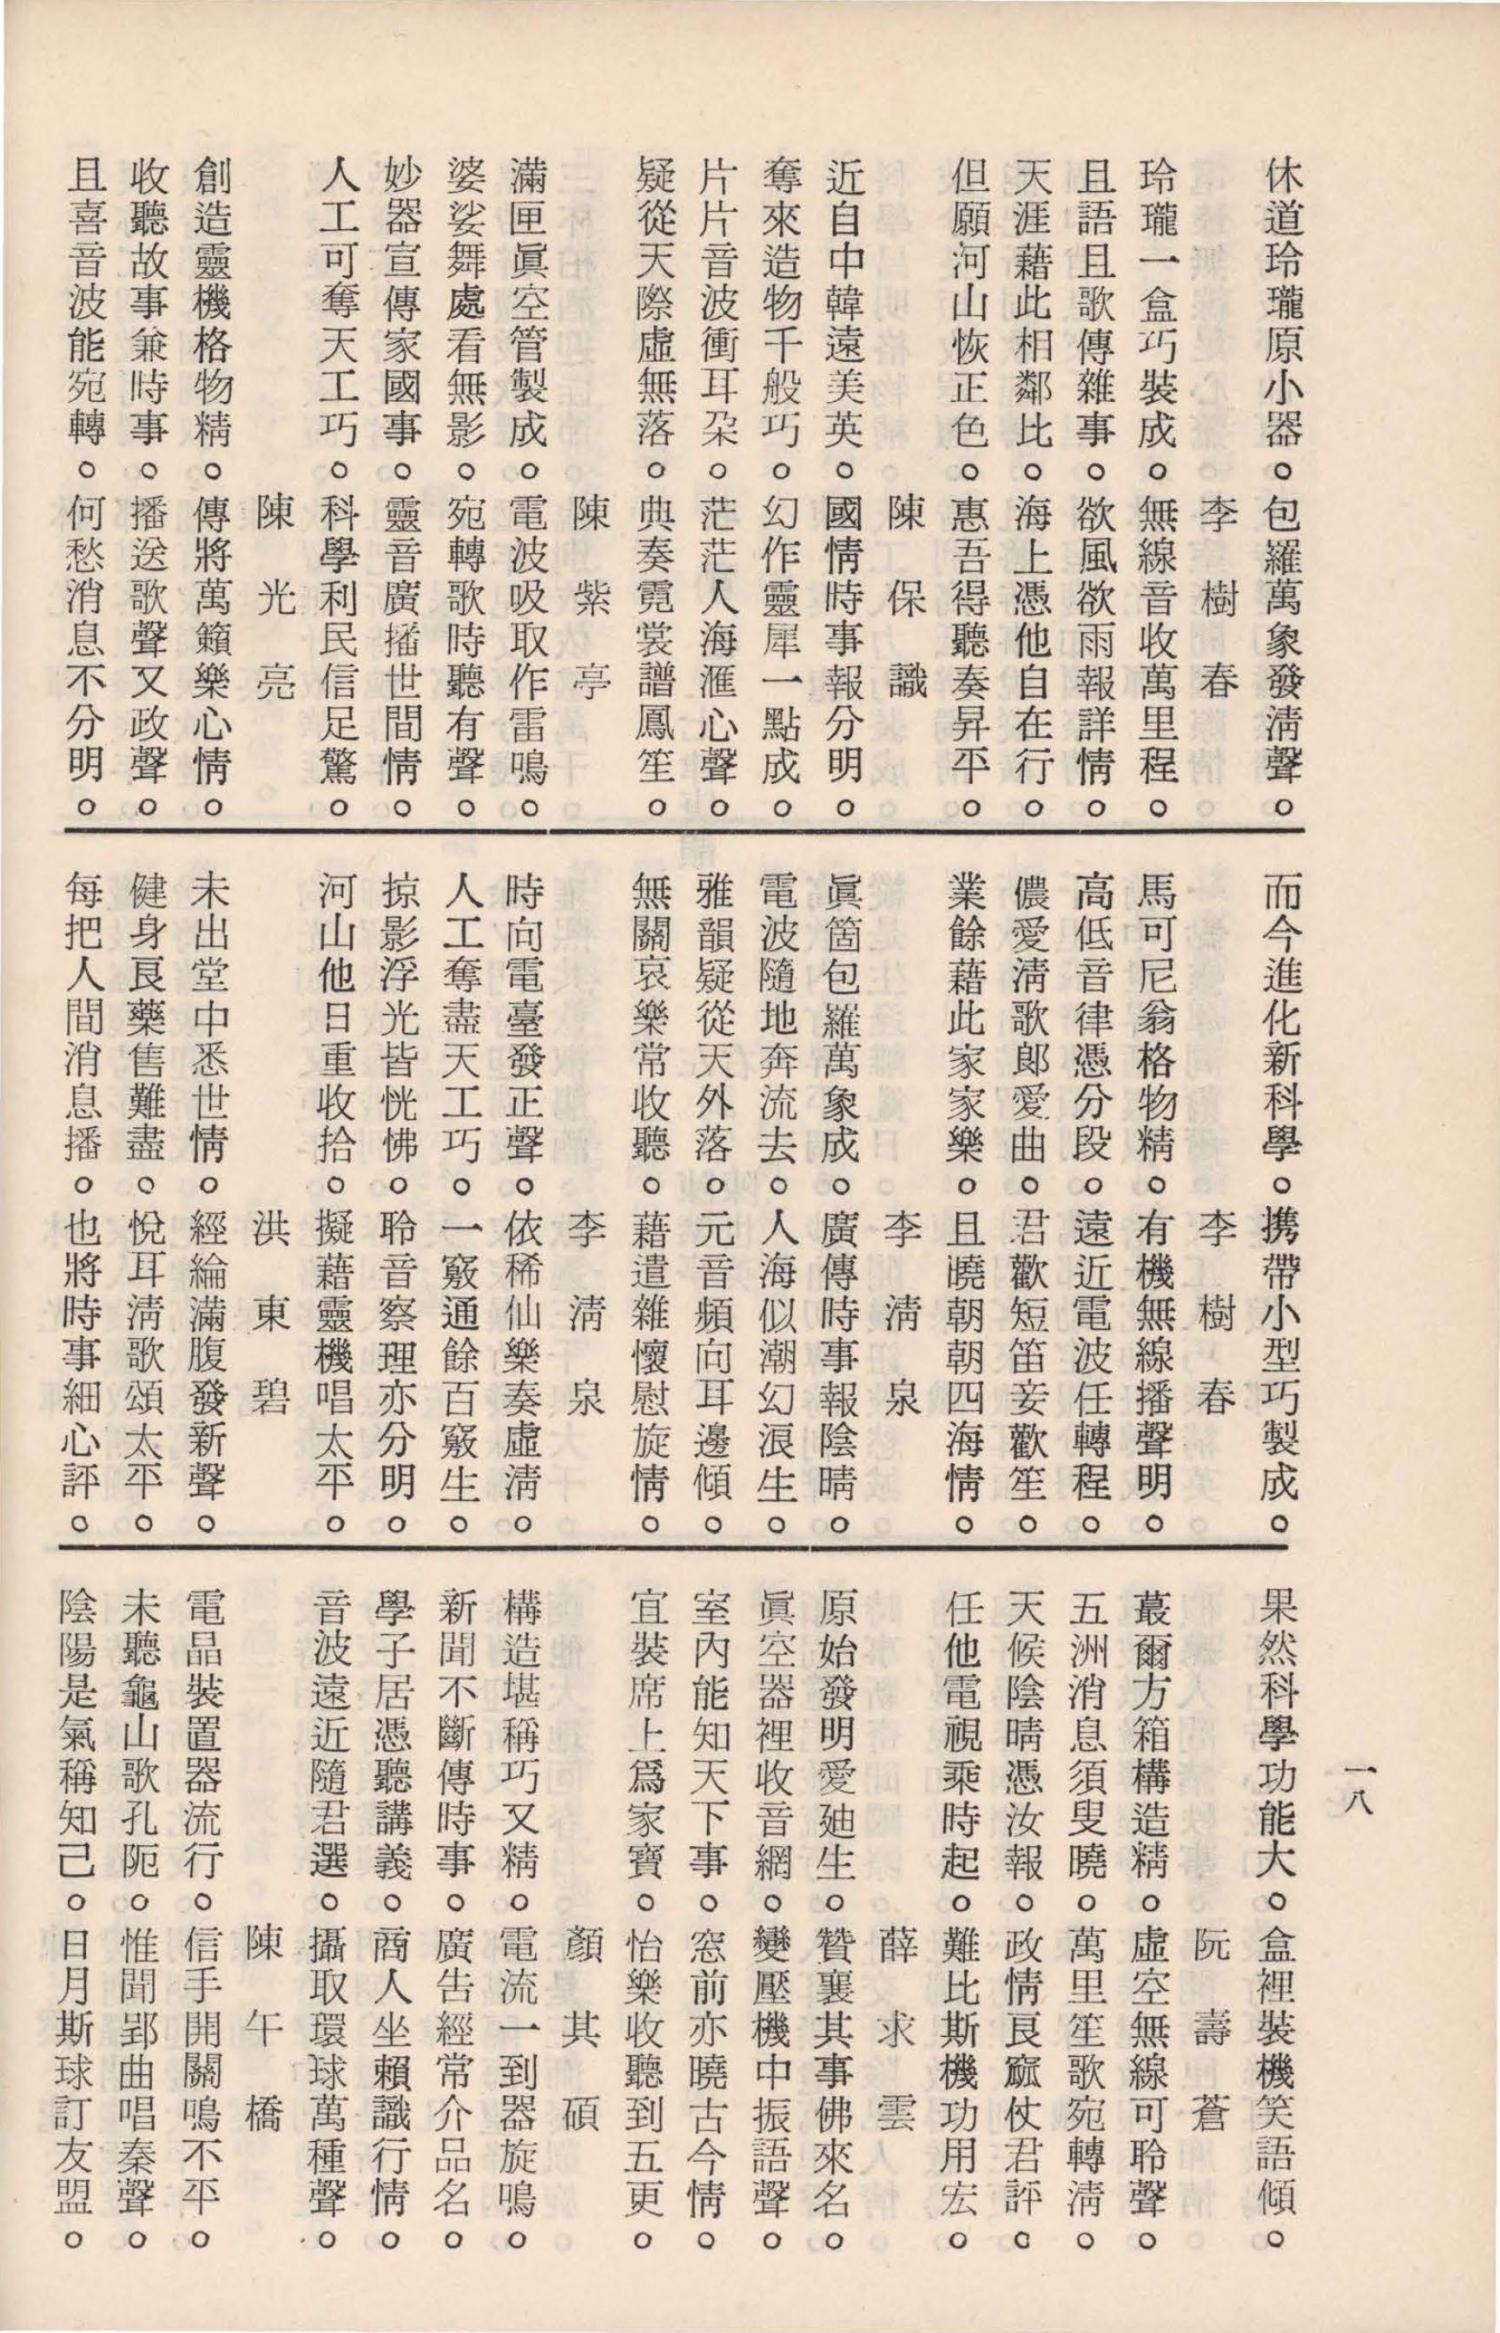 休道玲瓏原小器。包羅萬象發淸聲。
李樹春
玲瓏一盒巧裝成。無線音收萬里程。
且語且歌傳雜事。欲風欲雨報詳情。
天涯藉此相鄰比。海上憑他自在行。
但願河山恢正色。惠吾得聽奏昇平。
陳保識
近自中韓遠美英。國情時事報分明。
奪來造物千般巧。幻作靈犀一點成。
片片音波衝耳朶。茫茫人海滙心聲。
疑從天際虛無落。典奏霓裳譜鳳笙。
陳紫亭
滿匣眞空管製成。電波吸取作雷鳴。
婆娑舞處看無影。宛轉歌時聽有聲。
妙器宣傳家國事。靈音廣播世間情。
人工可奪天工巧。科學利民信足驚。
陳光亮
創造靈機格物精。傳將萬籟樂心情。
收聽故事兼時事。播送歌聲又政聲。
且喜音波能宛轉。何愁消息不分明。
而今進化新科學。携帶小型巧製成。
李樹春
馬可尼翁格物精。有機無線播聲明。
高低音律憑分段。遠近電波任轉程。
儂愛淸歌郎愛曲。君歡短笛妾歡笙。
業餘藉此家家樂。且曉朝朝四海情。
李淸泉
眞箇包羅萬象成。廣傳時事報陰晴。
電波隨地奔流去。人海似潮幻浪生。
雅韻疑從天外落。元音頻向耳邊傾。
無關哀樂常收聽。藉遣雜懷慰旋情。
李淸泉
時向電臺發正聲。依稀仙樂奏虛淸。
人工奪盡天工巧。一竅通餘百竅生。
掠影浮光皆恍怫。聆音察理亦分明。
河山他日重收拾。擬藉靈機唱太平。
洪東碧
未出堂中悉世情。經綸滿腹發新聲。
健身良藥售難盡。悅耳淸歌頌太平。
每把人間消息播。也將時事細心評。
果然科學功能大。盒裡裝機笑語傾。
阮壽蒼
蕞爾方箱構造精。虛空無線可聆聲。
五洲消息須叟曉。萬里笙歌宛轉淸。
天候陰晴憑汝報。政情良窳仗君評。
任他電視乘時起。難比斯機功用宏。
薛求雲
原始發明愛廸生。贊襄其事佛來名。
眞空器裡收音網。變壓機中振語聲。
室內能知天下事。窓前亦曉古今情。
宜裝席上爲家寶。怡樂收聽到五更。
顏其碩
構造堪稱巧又精。電流一到器旋鳴。
新聞不斷傳時事。廣告經常介品名。
學子居憑聽講義。商人坐賴識行情。
音波遠近隨君選。攝取環球萬種聲。
陳午橋
電品裝置器流行。信手開關鳴不平。
未聽龜山歌孔阨。惟聞郢曲唱秦聲。
陰陽是氣稱知己。日月斯球訂友盟。
一八